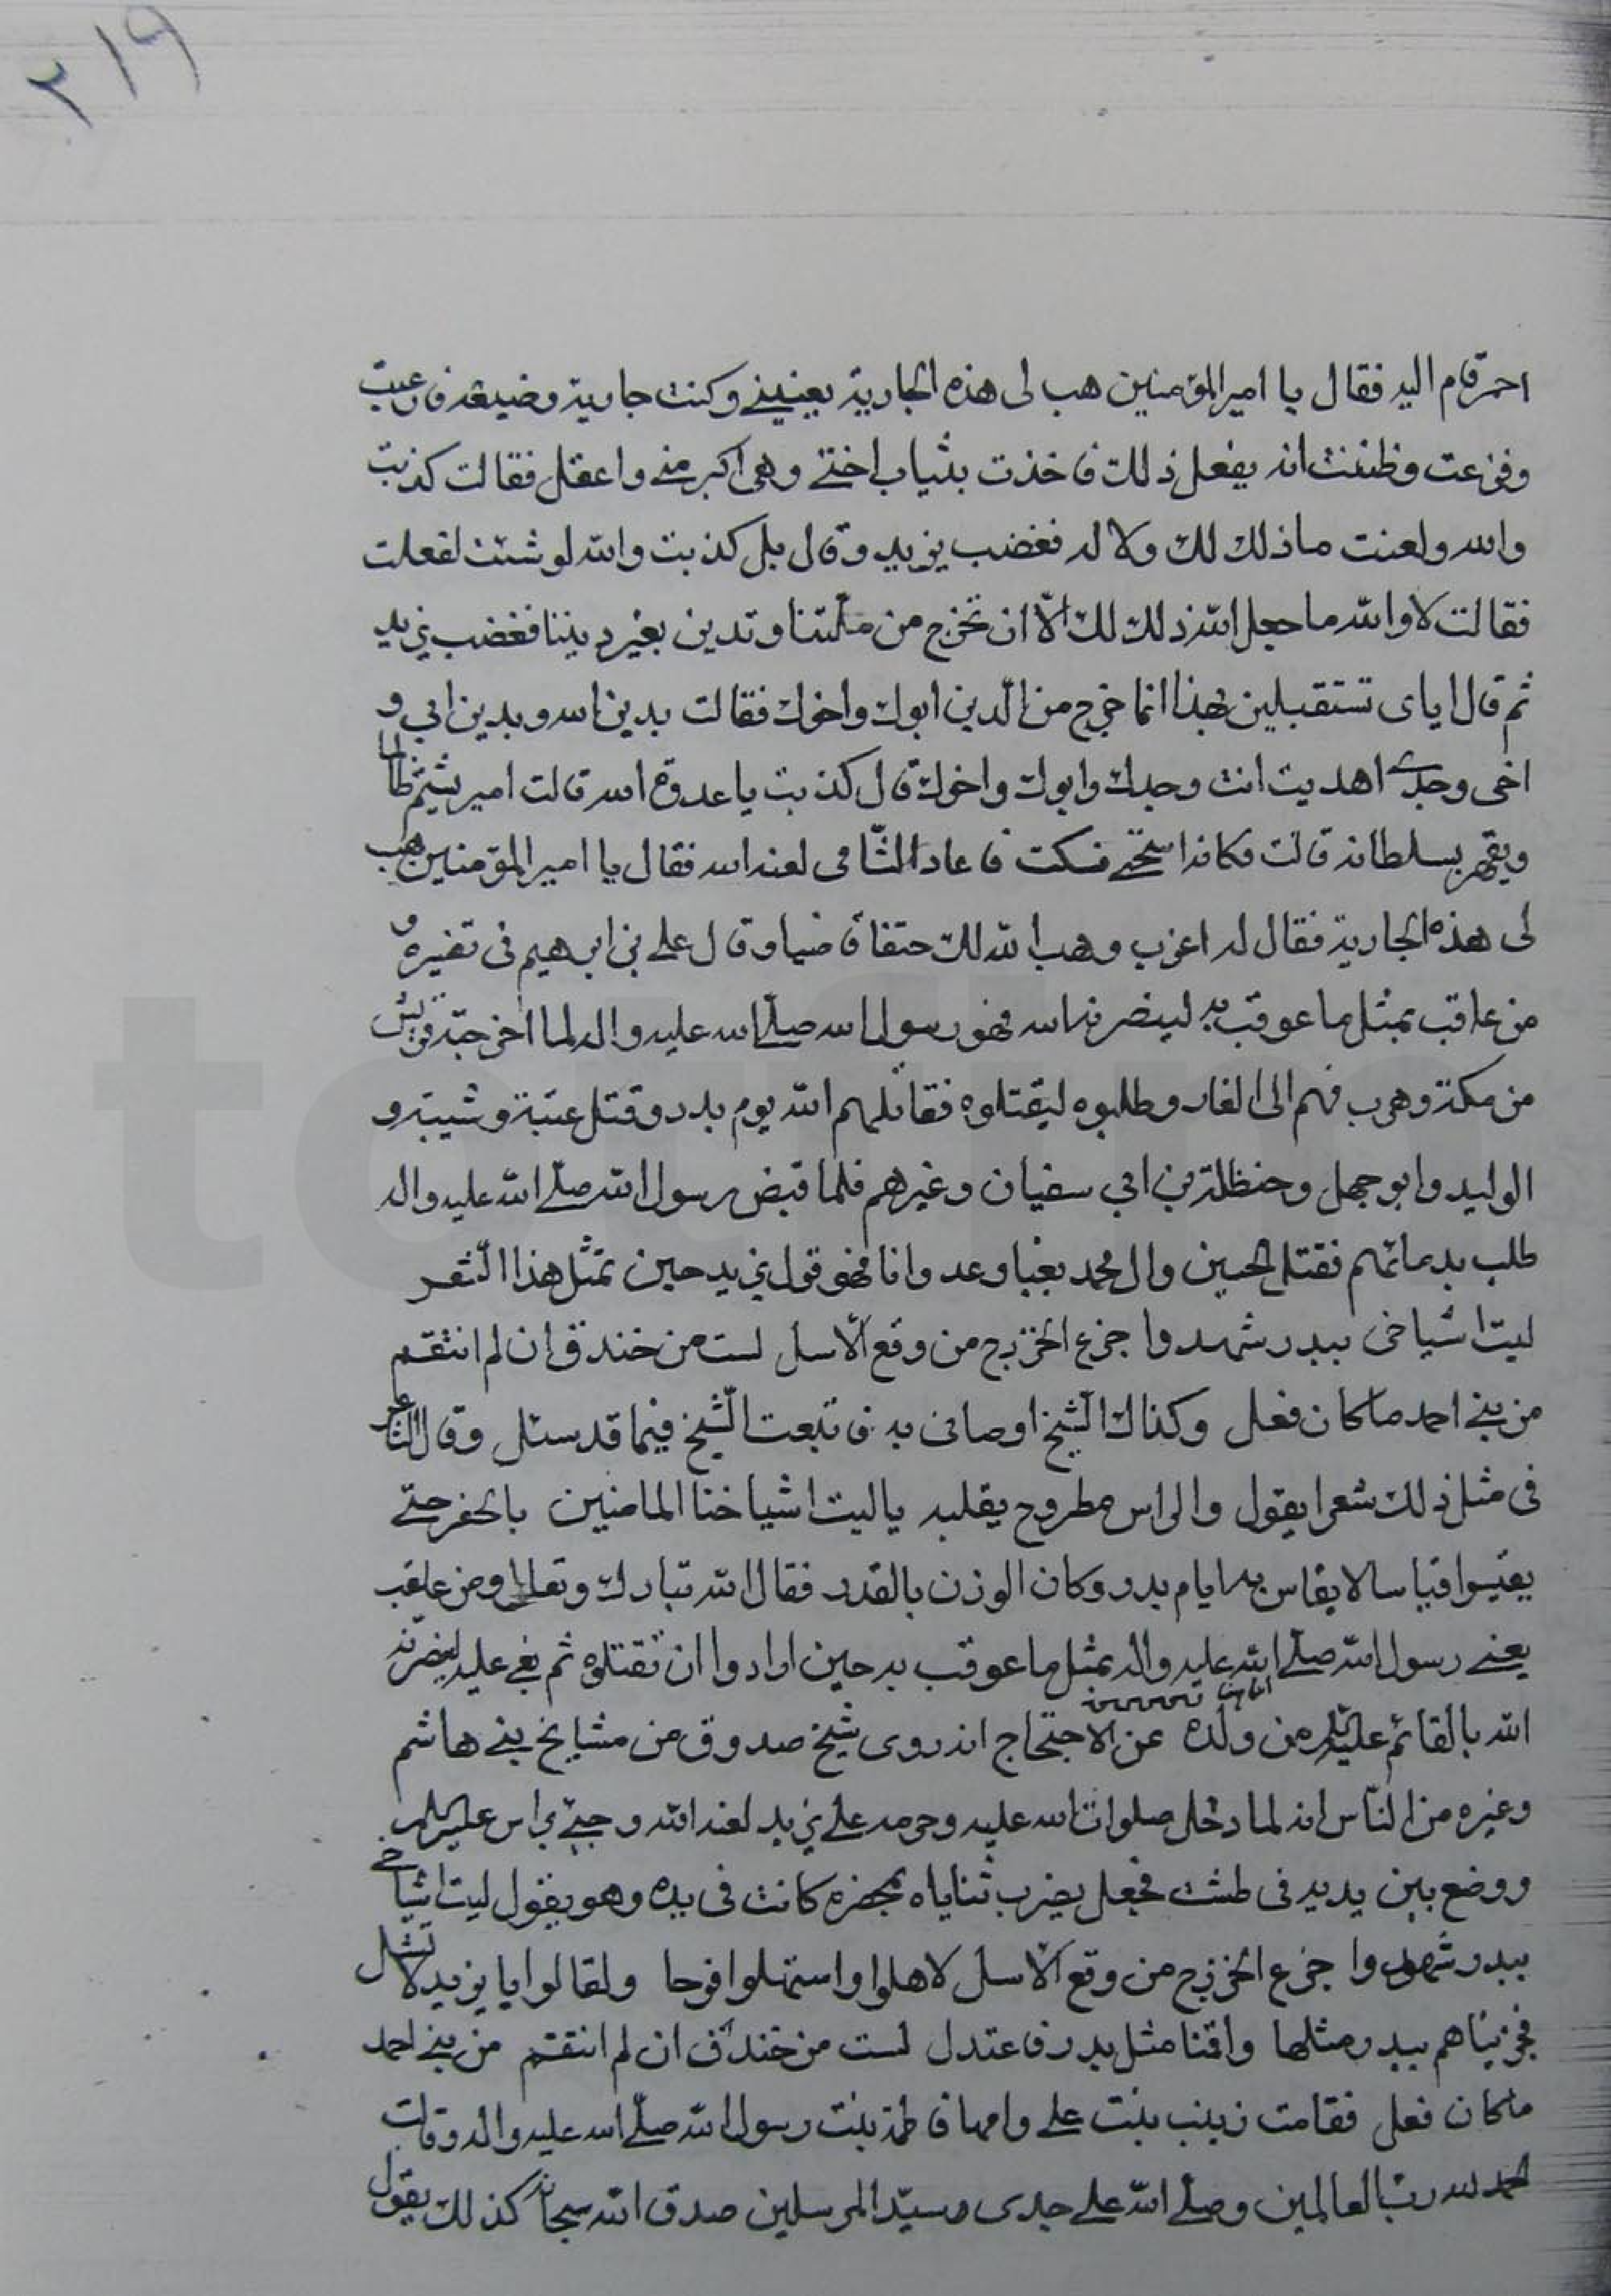 ٢١٩
احمر قام اليه فقال يا امير المؤمنين هب لى هذه الجارية يعنينى وكنت جارية وضيئة فارعبت
وفزعت وظننت انه يفعل ذلك فاخذت بثياب اختى وهى اكبر منى واعقل فقالت كذبت
والله ولعنت ما ذلك لك ولا له فغضب يزيد وقال بل كذبت والله لو شئت لفعلت
فقالت لا والله ما جعل الله ذلك لك الّا ان تخرج من ملّتنا وتدين بغير ديننا فغضب يزيد
ثم قال اياى تستقبلين بهذا انما خرج من الّدين ابوك واخوك فقالت بدين الله وبدين ابى و
اخى وجدى اهديت انت وجدك وابوك واخوك قال كذبت يا عدوة الله قالت امير يشتم ظالما
ويقهر بسلطانه قالت فكانه استحى فسكت فاعاد الشّامى لعنه الله فقال يا امير المؤمنين هب
لى هذه الجارية فقال له اعزب وهب الله لك حتفا قاضيا وقال على بن ابرهيم فى تفسيره و
من عاقب بمثل ما عوقب به لينصرنه الله فهو رسول الله صلّى الله عليه واله لما اخرجته قريش
من مكة وهرب فهم الى الغار وطلبوه ليقتلوه فقاتلهم الله يوم بدر وقتل عتبة وشيبة و
الوليد وابو جهل وحنظلة بن ابى سفيان وغيرهم فلما قبض رسول الله صلّى الله عليه واله
طلب بدمائهم فقتل الحسين وال محمد بغيا وعدوانا فهو قول يزيد حين تمثل هذا الشعر
ليت اشياخى ببدر شهدوا جزع الخزرج من وقع الاسل لست من خندق ان لم انتقم
من بنى احمد ما كان فعل وكذاك الشّيخ اوصانى به فاتبعت الشّيخ فيما قد سئل وقال الشاعر
فى مثل ذلك شعرا يقول والراس مطروح يقلبه ياليت اشياخنا الماضين بالحفر حتى
يقيسوا قياسا لا يقاس به ايام بدر وكان الوزن بالقدر فقال الله تبارك وتعالى ومن عاقب
يعنى رسول الله صلّى الله عليه واله بمثل ما عوقب به حين ارادوا ان تقتلوه ثم بغى عليه لينصرنه
الله بالقائم عليه السلام من ولده عن الاحتجاج انه روى شيخ صدوق من مشايخ بنى هاشم
وغيره من النّاس انه لما دخل صلوات الله عليه وحرمه على يزيد لعنه الله وجىء براس عليه السلام
ووضع بين يديه فى طشت فجعل يضرب ثناياه بمخصرة كانت فى يده وهو يقول ليت اشياخى
ببدر شهدوا جزع الخزرج من وقع الاسل لاهلوا واستهلوا فرحا ولقالوا يا يزيد لا تشل
فجزيناهم ببدر مثلها واقمنا مثل بدر فاعتدل لست من خندف ان لم انتقم من بنى احمد
ما كان فعل فقامت زينب بنت على وامها فاطمة بنت رسول الله صلّى الله عليه واله وقالت
الحمد لله ربّ العالمين وصلّى الله على جدى وسيّد المرسلين صدق الله سبحانه كذلك يقول